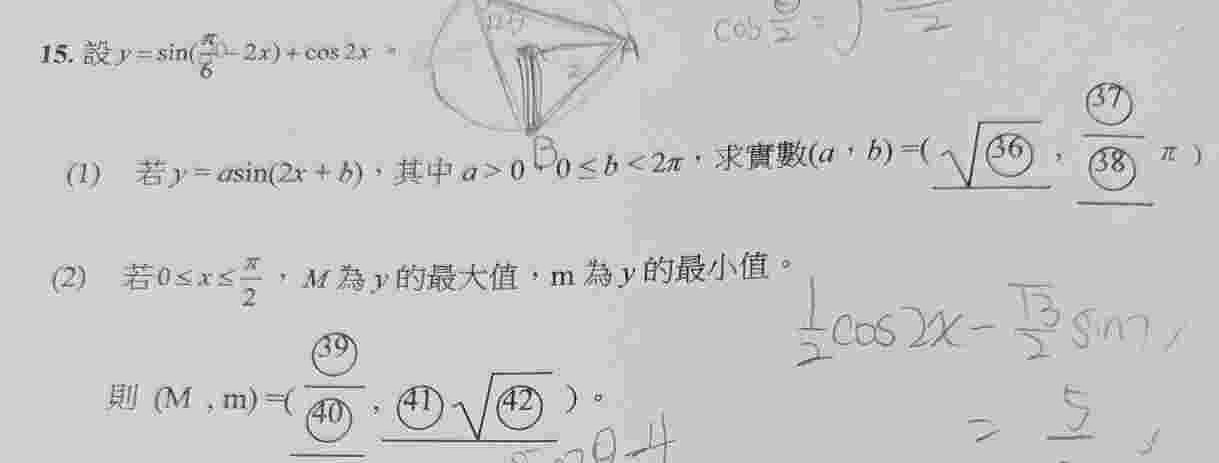 cos θ/2 = √ /2
15. 設 y = sin(π/6 - 2x) + cos 2x。
A
2
B
(1) 若 y = asin(2x + b),其中 a > 0,0 ≤ b < 2π,求實數(a,b) =( √㊱ , ㊲/㊳ π )
(2) 若 0 ≤ x ≤ π/2 , M 為 y 的最大值,m 為 y 的最小值。
1/2 cos2x - √3/2 sin
則 (M , m) =( ㊴/㊵ , ㊶√㊷ )。
= 5
θ-4